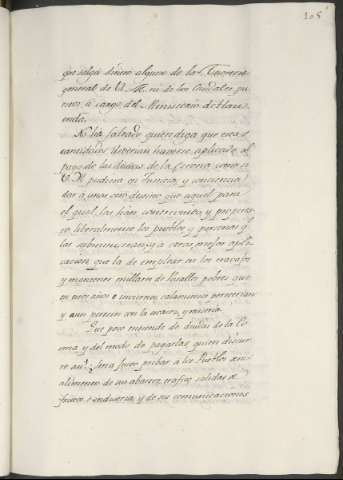 105
que salga dinero alguno de la Tesoreria
general de V. M. ni de los Caudales pu-
estos à cargo del Ministerio de Hazi-
enda.
No ha faltado quien diga que estas
cantidades deverian haverse aplicado al
pago de las deudas de la Corona como si
V. M. pudiera en Justicia y conciencia
dar à unas otro destino que aquel para
el qual las han contribuido y
liberalmente los pueblos y personas q.
las subministran, y à otras mejor apli-
cacion que la de emplear en los travajos
y mantener millares de Vasallos pobres que
en pocos años è inviernos calamitosos perecerian
y aun perecen con la ocacion y miseria.
Que poco entiende de deudas de la Co-
rona y del modo de pagarlas quien discur-
re asi! Seria bueno privar à los Pueblos
de sus abastos, trafico, salidas de
frutos è industria, y de sus comunicaciones